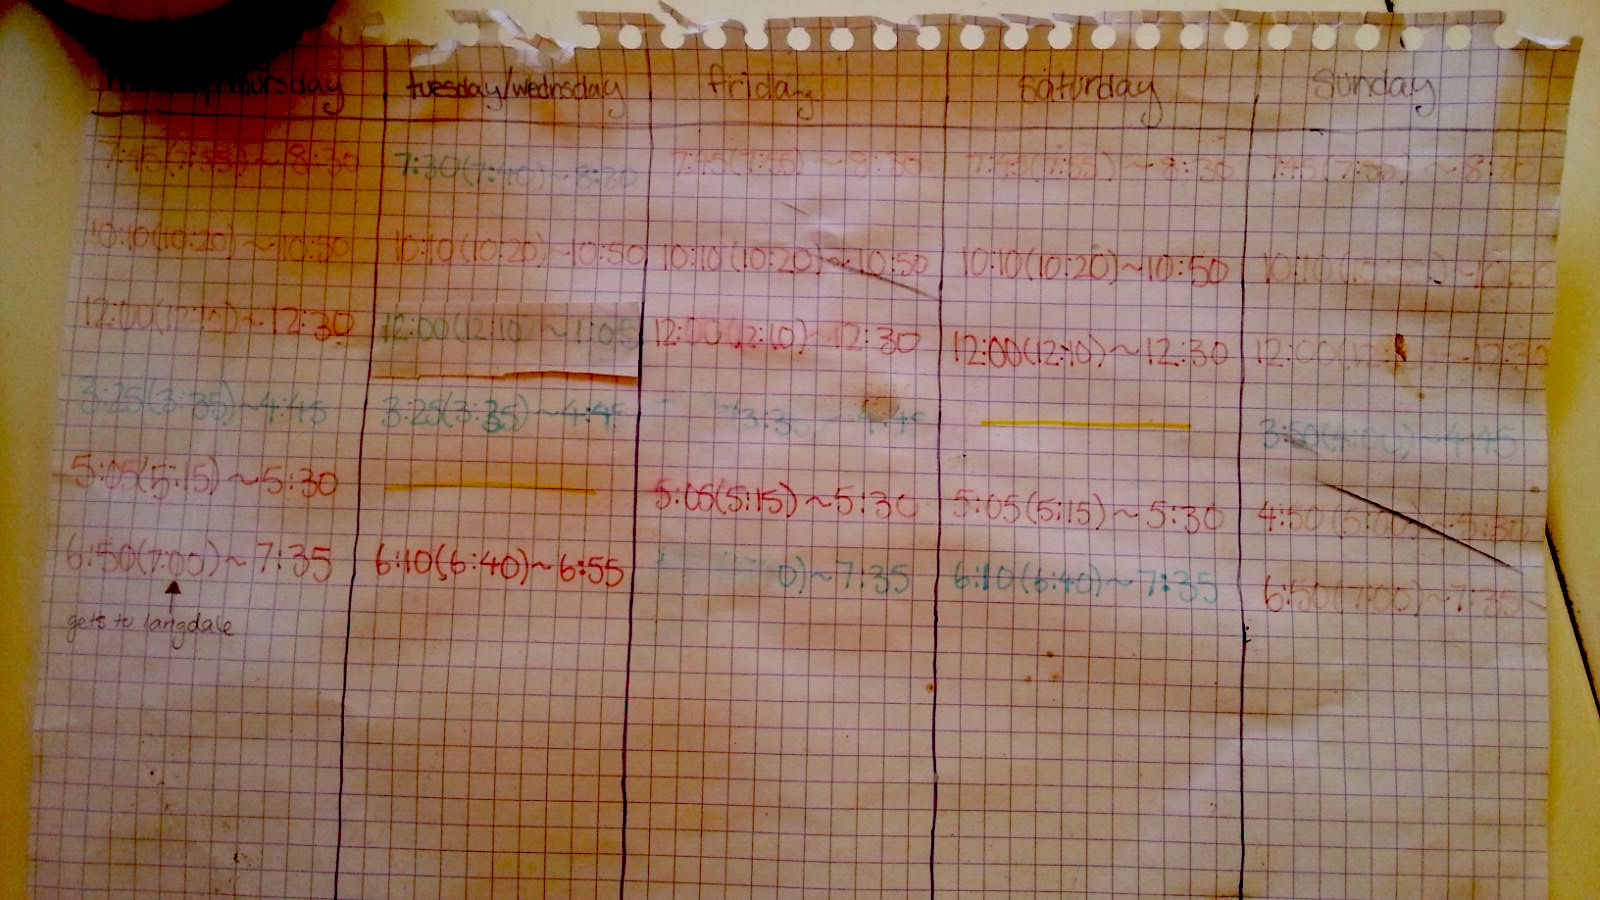 tuesday/wednsday friday saturday sunday
7:45(7:55) ~ 8:30 7:30(7:40) ~ 8:30 7:45(7:55) ~ 8:30 7:45(7:55) ~ 8:30 7:45(7:55) ~ 8:30
10:10(10:20) ~ 10:50 10:10(10:20) ~10:50 10:10(10:20) ~ 10:50 10:10(10:20) ~ 10:50
12:00(12:10) ~ 12:30 12:00(12:10) ~ 1:05 12:00(12:10) ~ 12:30 12:00(12:10) ~ 12:30
3:25(3:35) ~4:45 3:25(3:35) ~ 4:45 ~4:45
5:05(5:15) ~ 5:30 5:05(5:15) ~ 5:30 5:05(5:15) ~ 5:30 4:50(5:00)
6:50(7:00) ~ 7:35 6:10(6:40) ~ 6:55 0) ~ 7:35 6:10(6:40) ~ 7:35 6:50(7:00) ~ 7:35
gets to langdale